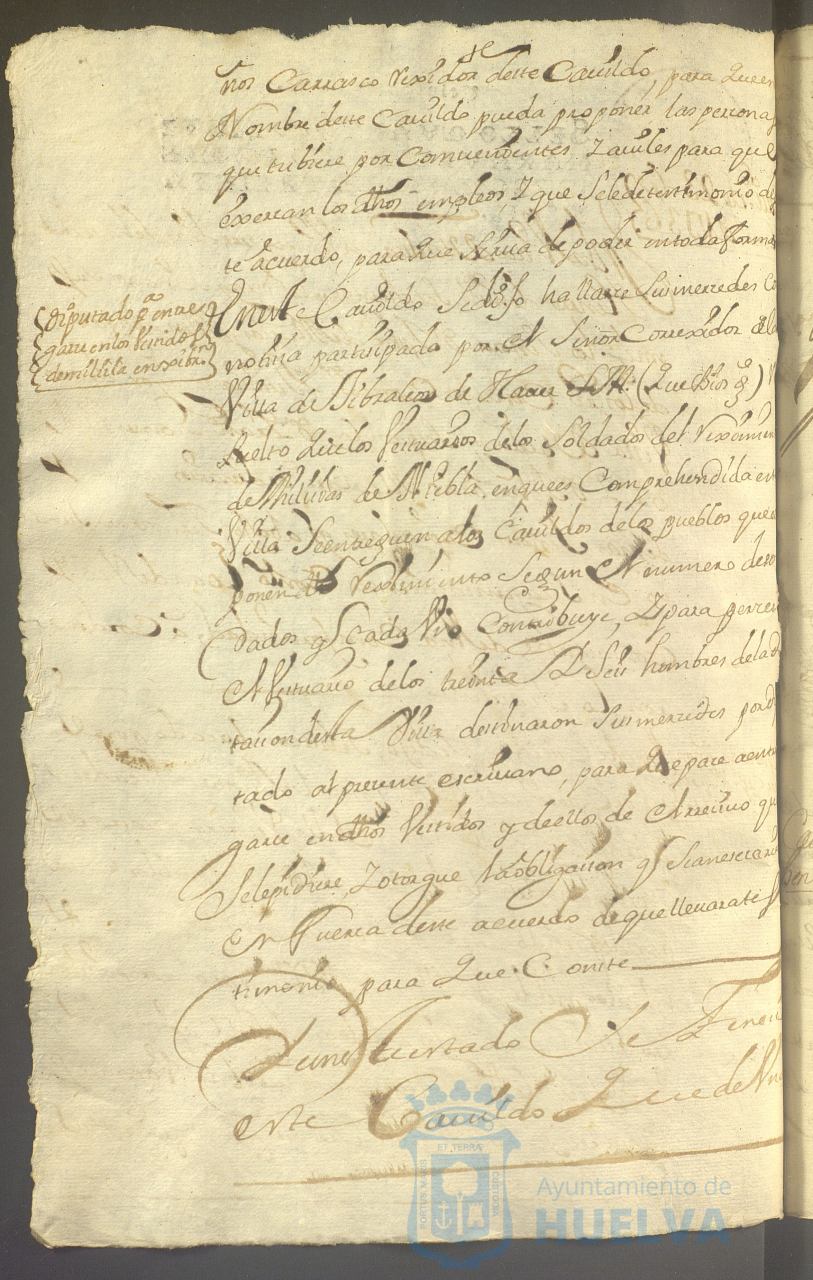 ños Carrasco rexidor deste Cauildo, para que en
Nombre deste Cauildo pueda proponer las personas
que tubiere por Combenientes, y auiles para que
exersan los dhos empleos y que sele de testimonio des
te acuerdo, para que sirua de poder en toda forma
Diputado pa. entre
garse en los Vestidos
de milisia
En este Cauildo se dijo hallarse sus mercedes co
notisia partisipada por el Señor Correxidor de la
Villa de Gibraleon de Hauer S.M. (que Dios ge)
suelto que los Vestuarios de los Soldados del reximien
de Milisias de Niebla, en que es Comprehendida es
Villa se entreguen a los Cauildos de los pueblos que
ponen dho reximiento segun el numero de sol
dados q cada Vno Contribuye, y para
el Vestuario de los treinta y seis hombres de la do
tasion desta Villa destinaron sus mercedes por
tado al presente escriuano, para que pase a entre
garse en dhos Vestidos y de ellos de el Resiuo qu
se le pidiere, y otorgue la obligasion q sea nesesaria
en fuersa deste acuerdo de que lleuara tes
timonio para que Conste
y en este estado se
este Cauildo que
ET TERRÆ
PORTUS MARIS
CUSTODIA
Ayuntamiento de
HUELVA